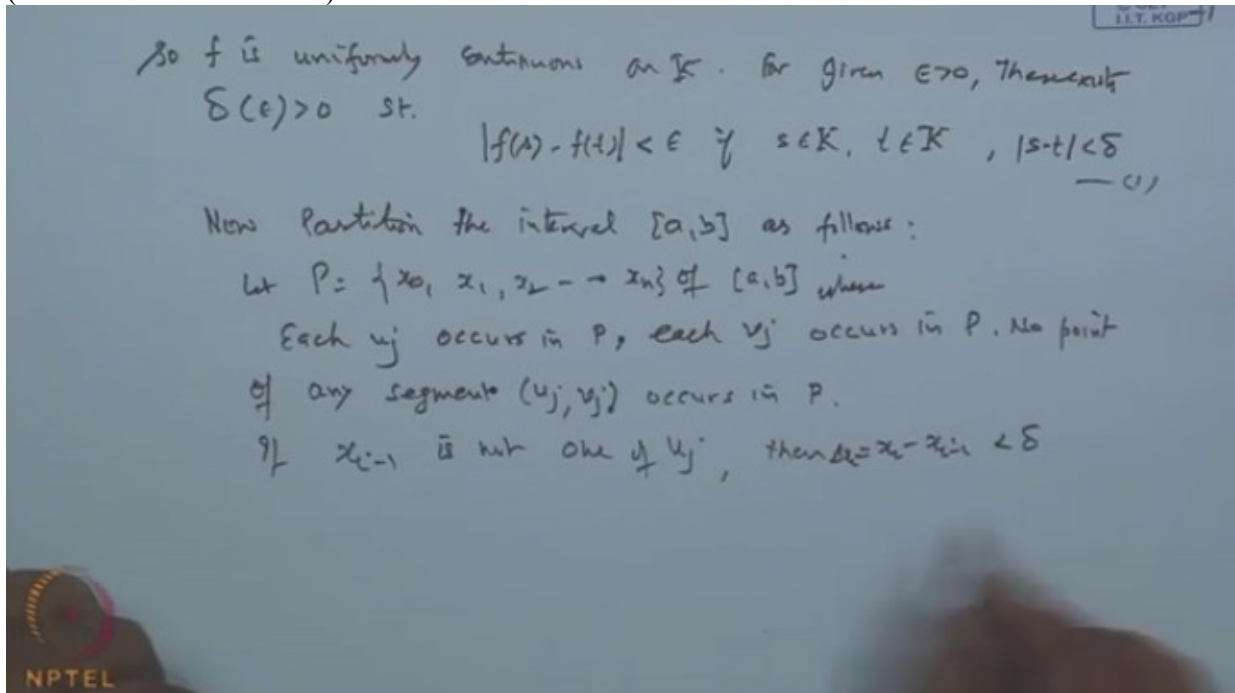 I.I.T. KGP
So f is uniformly continuous on K. For given ε>0, There exists
δ(ε)>0 st.
|f(s)-f(t)| < ε if s∈K, t∈K, |s-t|<δ
—(1)
Now Partition the interval [a,b] as follows:
Let P = {x0, x1, x2 - - xn} of [a,b] where
Each uj occurs in P, each vj occurs in P. No point
of any segment (uj, vj) occurs in P.
If xi-1 is not one of uj, then Δxi = xi - xi-1 < δ
NPTEL